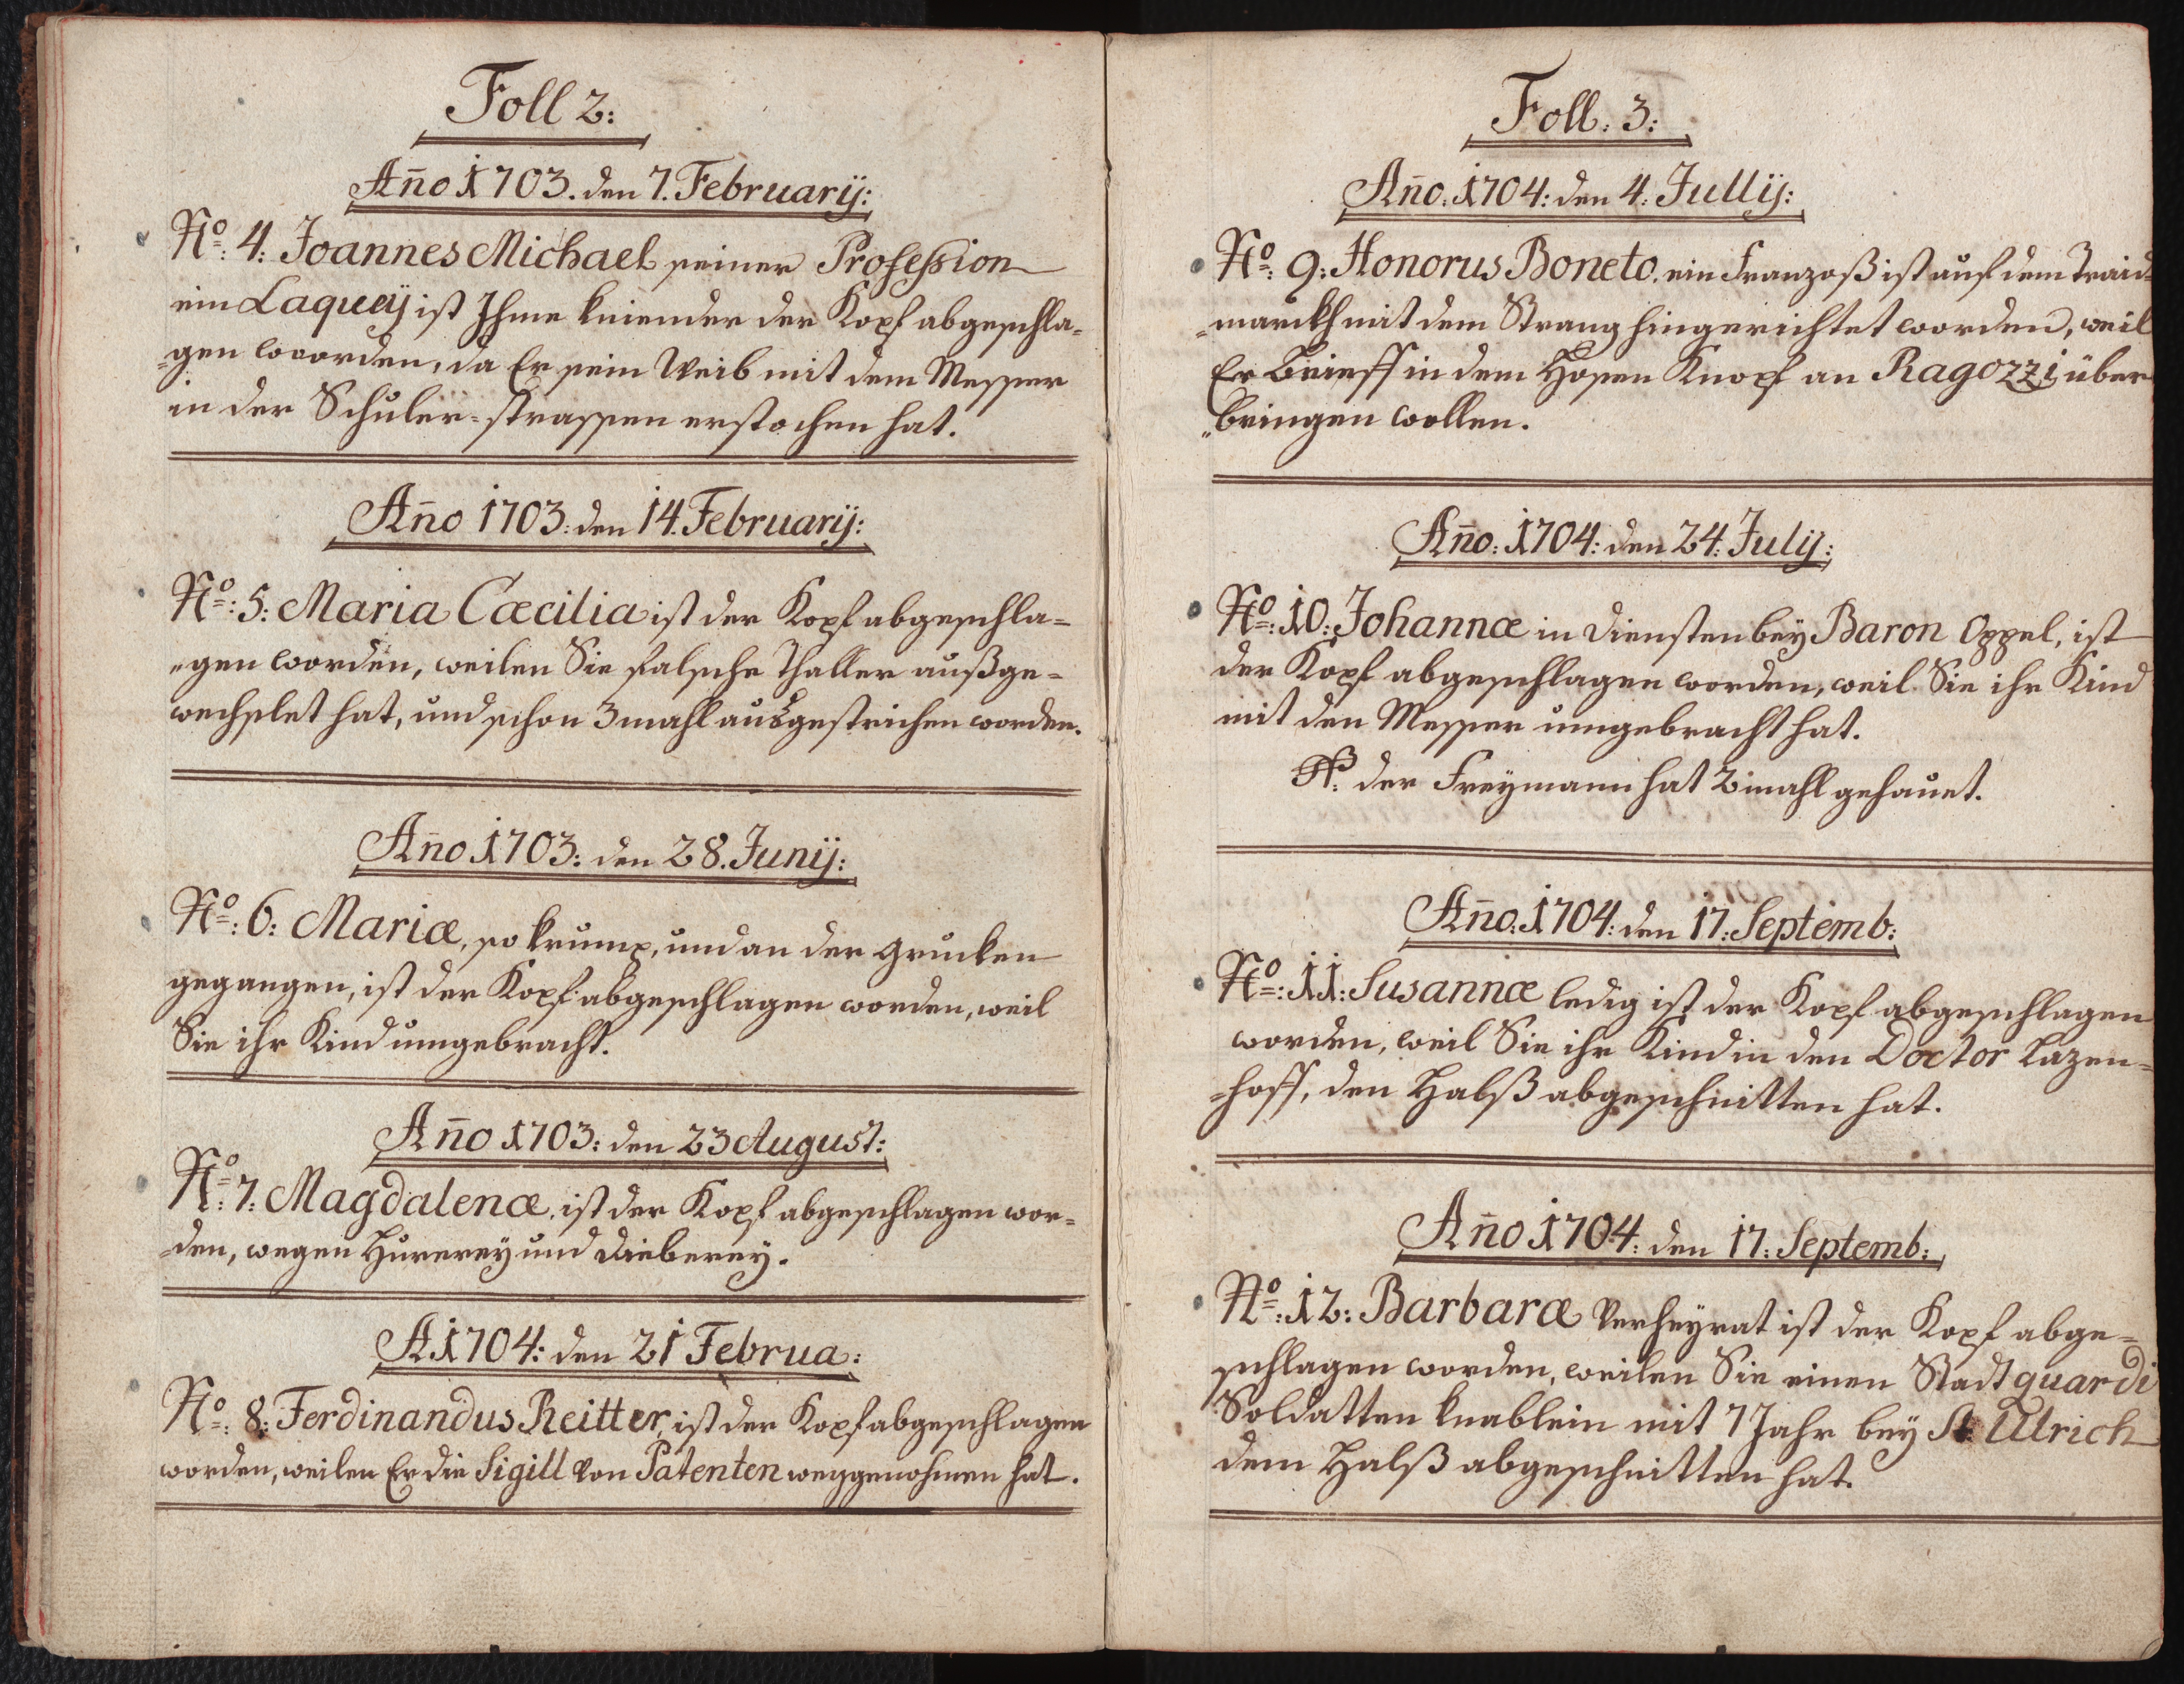 Foll 2:
Añо 1703. den 7. Februarij:
Nº: 4: Joannes Michael seiner Profession
ein Laqueÿ ist Ihme kniender der Kopf abgeschla-
-gen woorden, da Er sein Weib mit dem Messer
in der Schuler-strassen erstochen hat.
Año 1703: den 14. Februarij:
Nº: 5: Maria Cæcilia ist der Kopf abgeschla-
-gen worden, weilen Sie falsche Thaller außge-
wechslet hat, und schon 3 mahl ausgestrichen worden.
Año 1703: den 28. Junij:
Nº: 6: Mariæ, so krump, und an der grucken
gegangen, ist der Kopf abgeschlagen worden, weil
Sie ihr Kind umgebracht.
Año 1703: den 23 August:
Nº: 7: Magdalenæ, ist der Kopf abgeschlagen wor-
-den, wegen Hurereÿ und Dieberey.
A 1704: den 21 Februa:
Nº: 8: Ferdinandus Reitter, ist der Kopf abgeschlagen
worden, weilen Er die Sigill von Patenten weggenohmen hat.
Foll: 3:
Año: 1704: den 4: Jullij:
Nº: 9: Honorus Boneto, ein Franzoß ist auf dem Traid-
-marckh mit dem Strang hingerichtet worden, weil
Er Brieff in dem Hosen Knopf an Ragozzi über
-bringen wollen.
Año: 1704: den 24: Julij:
Nº: 10: Johannæ in Diensten beÿ Baron Oppel, ist
der Kopf abgeschlagen worden, weil Sie ihr Kind
mit den Messer umgebracht hat.
NB: der Freÿmann hat 2 mahl gehauet.
Año: 1704: den 17: Septemb:
Nº: 11: Susannæ ledig ist der Kopf abgeschlagen
worden, weil Sie ihr Kind in den Doctor Lazen-
-hoff, den Halß abgeschnitten hat.
Año 1704: den 17: Septemb:
Nº: 12: Barbaræ verheÿrat ist der Kopf abge-
schlagen worden, weilen Sie einen Stadt quardi
Soldatten knablein mit 7 Jahr beÿ St: Ulrich
dem Halß abgeschnitten hat.